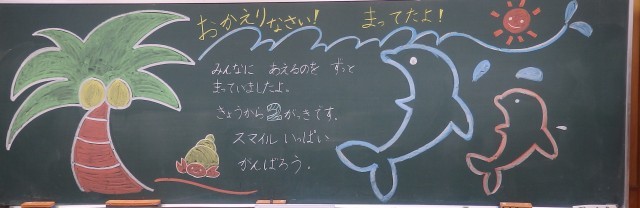 おかえりなさい! まってたよ!
みんなに あえるのを ずっと
まっていましたよ。
きょうから2がっきです.
スマイル いっぱい
がんばろう.